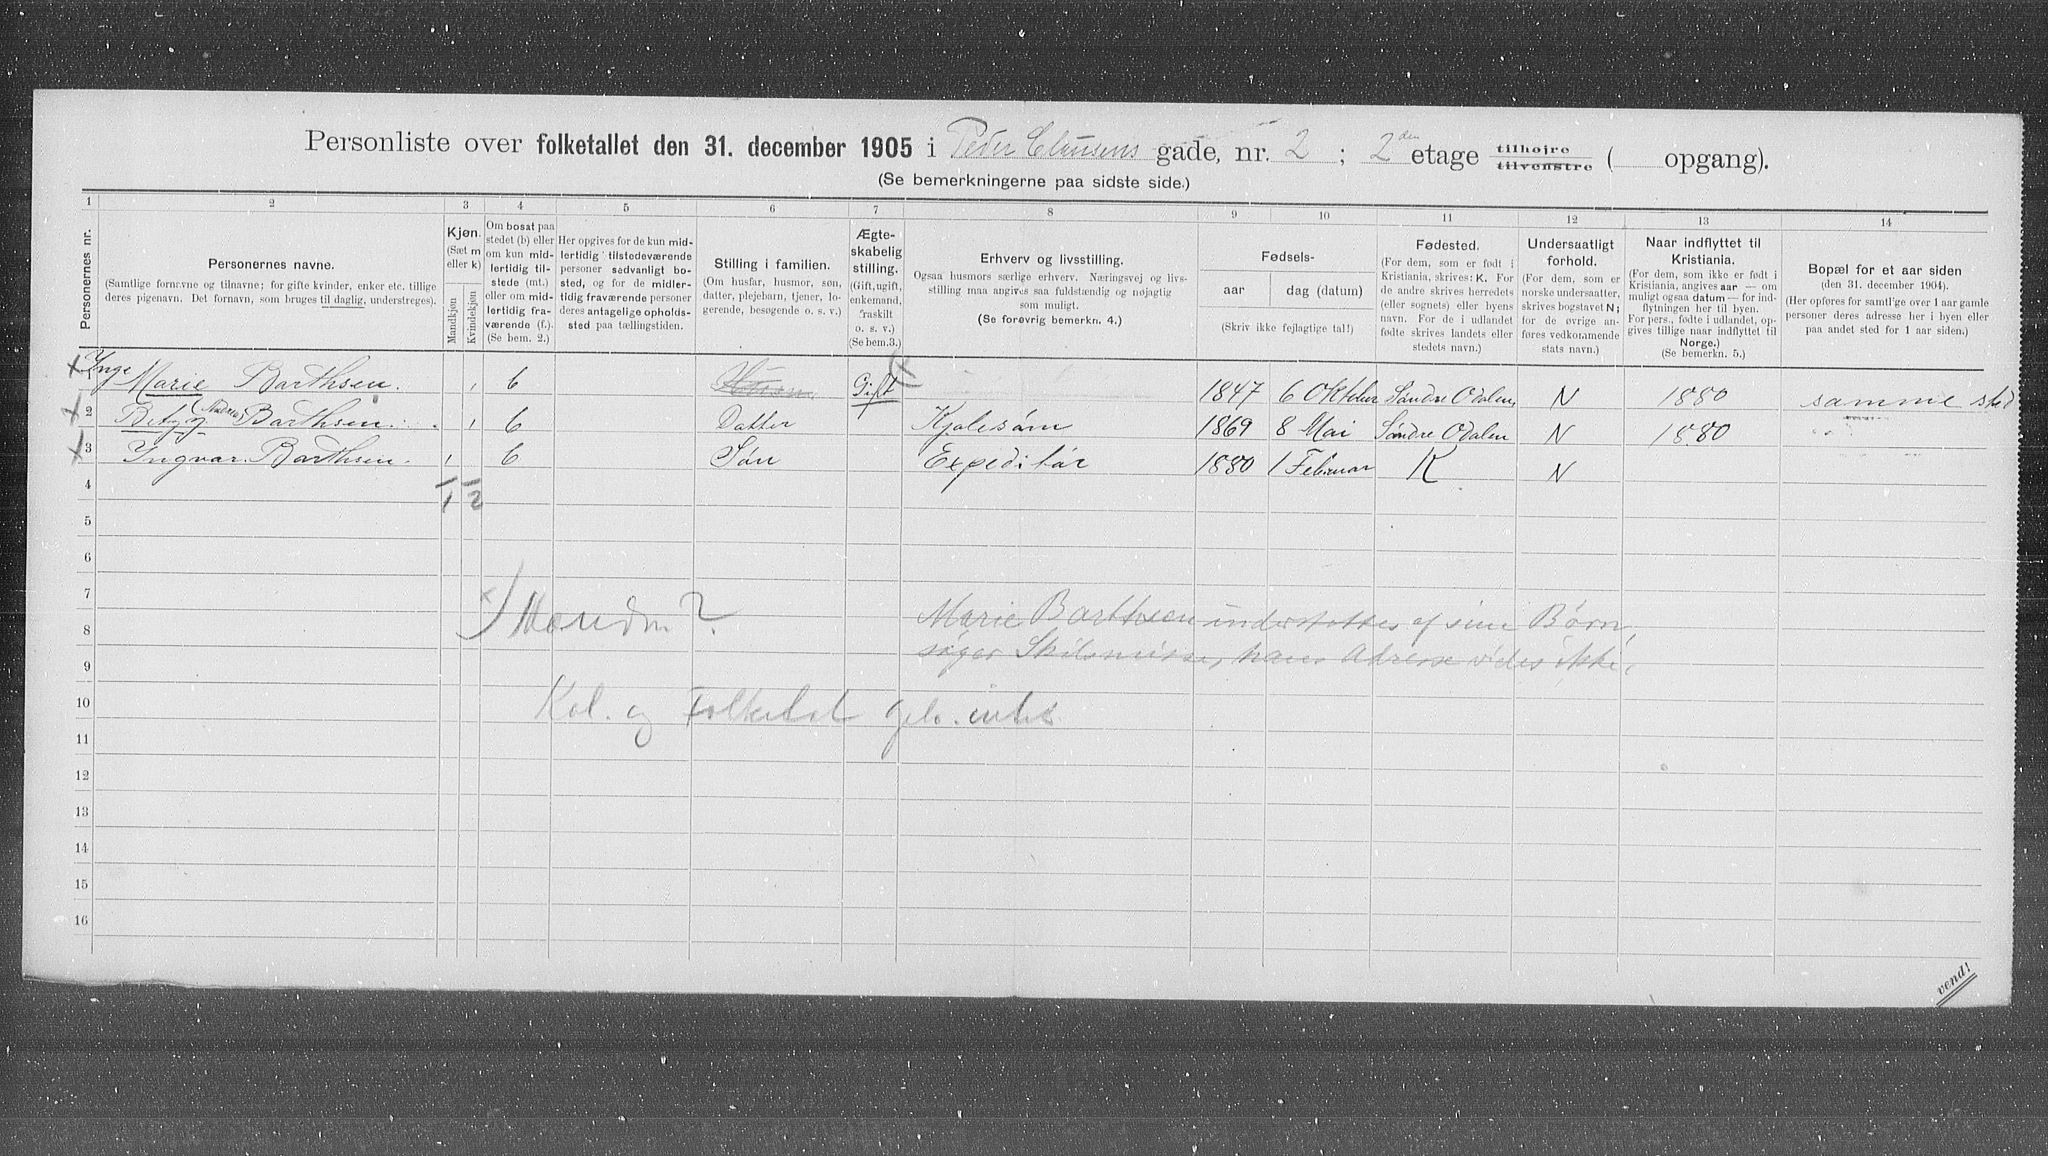 Personliste over folketallet den 31. december 1905 i Peder Clausens gade, nr. 2 ; 2den etage tilhøjre tilvenstre ( opgang).
(Se bemerkningerne paa sidste side.)
1 2 3 4 5 6 7 8 9 10 11 12 13 14
Personernes nr.
Personernes navne.
(Samtlige fornavne og tilnavne; for gifte kvinder, enker etc. tillige
deres pigenavn. Det fornavn, som bruges til daglig, understreges).
Kjøn.
(Sæt m
eller k)
Mandkjøn
Kvindekjøn
Om bosat paa
stedet (b) eller
om kun mid-
lertidig til-
stede (mt.)
eller om mid-
lertidig fra-
værende (f.).
(Se bem. 2.)
Her opgives for de kun mid-
lertidig tilstedeværende
personer sedvanligt bo-
sted, og for de midler-
tidig fraværende personer
deres antagelige opholds-
sted paa tællingstiden.
Stilling i familien.
(Om husfar, husmor, søn,
datter, plejebarn, tjener, lo-
gerende, besøgende o. s. v.)
Ægte-
skabelig
stilling.
(Gift, ugift,
enkemand,
fraskilt
o. s. v.)
(Se bem.3.)
Erhverv og livsstilling.
Ogsaa husmors særlige erhverv. Næringsvej og livs-
stilling maa angives saa fuldstændig og nøjagtig
som muligt.
(Se forøvrig bemerkn. 4.)
Fødsels-
aar dag (datum)
(Skriv ikke fejlagtige tal!)
Fødested.
(For dem, som er født i
Kristiania, skrives: K. For
de andre skrives herredets
(eller sognets) eller byens
navn. For de i udlandet
fødte skrives landets eller
stedets navn.)
Undersaatligt
forhold.
(For dem, som er
norske undersaatter,
skrives bogstavet N;
for de øvrige an-
føres vedkommende
stats navn.)
Naar indflyttet til
Kristiania.
(For dem, som ikke er født i
Kristiania, angives aar — om
muligt ogsaa datum — for ind-
flytningen her til byen.
For pers., fødte i udlandet, op-
gives tillige naar indflyttet til
Norge.)
(Se bemerkn. 5.)
Bopæl for et aar siden
(den 31. december 1904).
(Her opføres for samtlige over 1 aar gamle
personer deres adresse her i byen eller
paa andet sted for 1 aar siden.)
Inge
Marie Barthsen. 1 b Gift 1847 6 Oktober Søndre Odalen N 1880 samme sted
2 Betzy (Andrea) Barthsen. 1 b Datter Kjolesøm 1869 8 Mai Søndre Odalen N 1880
3 Ingvar Barthsen. 1 b Søn Expeditør 1880 1 Februar K N
4 1 2
5
6
7 x) Manden? Marie Barthsen understøttes af sine Børn,
8
9 søger Skilsmisse, hans Adresse vides ikke.
10 Kal. og Folketal
11
12
13
14
15
16
vend!